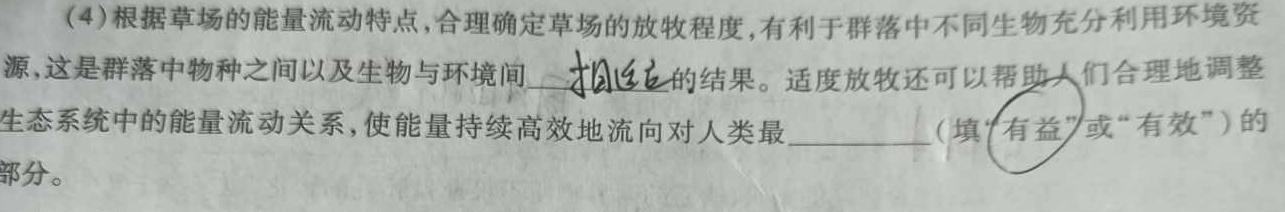 (4)根据草场的能量流动特点,合理确定草场的放牧程度,有利于群落中不同生物充分利用环境资
源,这是群落中物种之间以及生物与环境间 相适应 的结果。适度放牧还可以帮助人们合理地调整
生态系统中的能量流动关系,使能量持续高效地流向对人类最________(填“有益”或“有效”)的
部分。